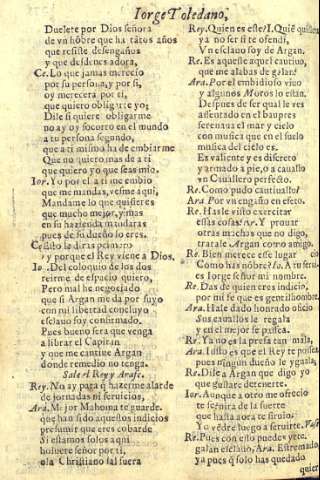 Iorge Toledano,
Duelete por Dios señora
de vn hõbre que ha tãtos años
que resiste desengaños
y que desdenes adora,
Ce. Lo que jamas merecio
por su persona, y por si,
oy merecera por ti,
que quiero obligarte yo;
Dile si quiere obligarme
no ay oy socorro en el mundo
a tu persona segundo,
que a ti mismo ha de embiarme
Que no quiero mas de a ti
que quiero yo que seas mio.
Ior. Yo por el a ti me embio
que me mandas, vesme aqui,
Mandame lo que quisieres
que mucho mejor, y mas
en su hazienda mandaras
pues de su dueño lo eres.
Ce. Esto la diras primero
y porque el Rey viene a Dios.
Io. Del coloquio de los dos
reirme de espacio quiero,
Pero mal he negociado
que si Argan me da por suyo
con mi libertad concluyo
esclauo soy confirmado.
Pues bueno sera que venga
a librar el Capitan
y que me cautiue Argan
donde remedio no tenga.
Sale el Rey y Araje.
Rey. No ay paga q̃ hazerme alarde
de jornadas ni seruicios,
Ara. Mejor Mahoma te guarde.
que han sido aquestos indicios
presumir que eres cobarde
Si estamos solos aqui
huelue señor por ti,
ola Christiano sal fuera
Rey. Quien es este? I. Quiẽ
ya no ser si te ofendi,
Vn esclauo soy de Argan.
Re. Es aqueste aquel cautiuo,
que me alabas de galan?
Ara. Por el embidioso viuo
y algunos Moros lo estan.
Despues de ser qual le ves
assentado en el baupres
serenaua el mar y cielo
con musica que en el suelo
musica del cielo es.
Es valiente y es discreto
y armado a pie, o a cauallo
vn Cauallero perfecto.
Re. Como pudo cautiuallo?
Ara Por vn engaño en efeto.
Re. Hasle visto exercitar
essas cosas? Y prouar
otras muchas que no digo,
tratale Argan como amigo.
Re. Bien merece esse lugar
Como has nõbre? Io. A tu serui
es Iorge señor mi nombre.
Re. Das de quien eres indicio,
por mi fe que es gentilhombre.
Ara. Hale dado honrado oficio
Sus cauallos le regala
y en el mejor se passea.
Re. Ya no es la presa tan mala,
Ara. Iusto es que el Rey te possea
pues ningun dueño le yguala,
Re. Dile a Argan que digo yo
que gustare detenerte.
Ior. Aunque a otro me ofrecio
te seruira de la suerte
que hasta aora te siruio.
Yo vẽdre luego a seruirte.
Re. Pues con esto puedes yrte.
galan esclauo, Ara. Estremado
ya pues q̃ solo has quedado
quier